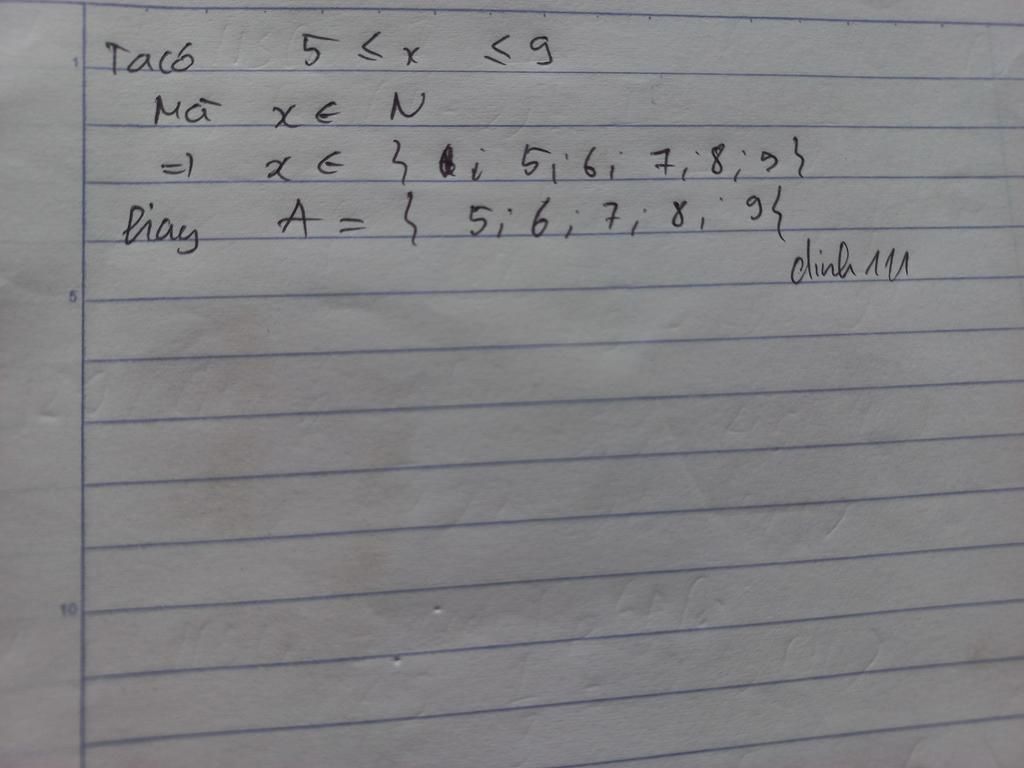 Ta có 5 ≤ x ≤ 9
Mà x ∈ N
=) x ∈ { ; 5; 6; 7; 8; 9}
A = { 5; 6; 7; 8; 9{
dinh 111
1
5
10